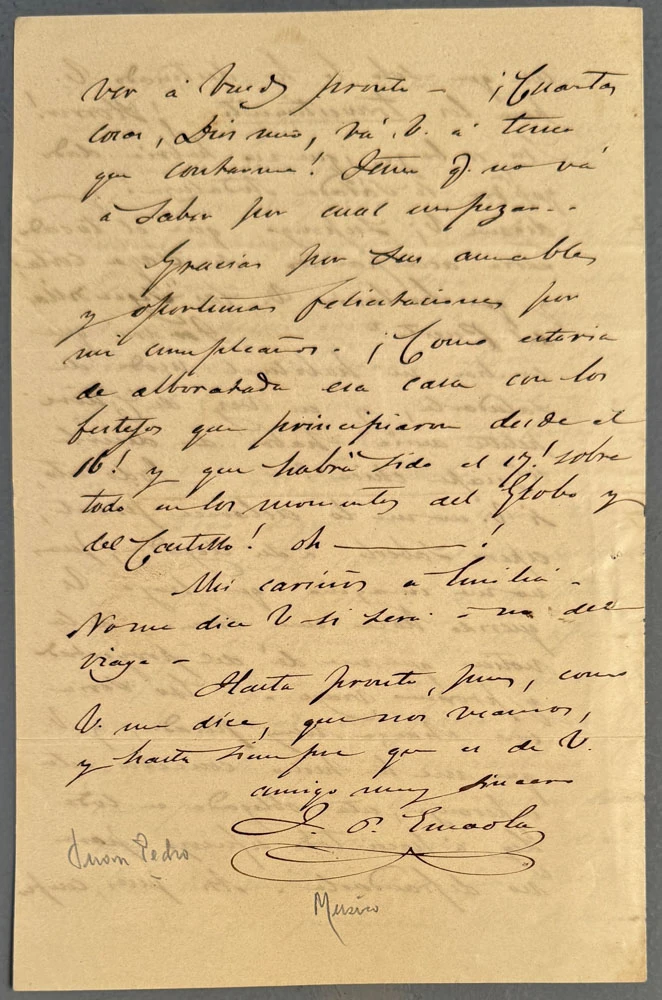 ver á Vueds pronto – ¡Cuantas
cosas, Dios mio, vá V. á tener
que contarme! Temo q. no vá
á saber por cual empezar..
Gracias por sus amables
y oportunas felicitaciones por
mi cumpleaños. ¡Como estaria
de alborotada esa casa con los
festejos que principiaron desde el
16! y que habrá sido el 17! sobre
todo en los momentos del Globo y
del Castillo! oh ——— !
Mis cariños a Emilia –
No me dice V. si será ó no del
viage –
Hasta pronto, pues, como
V. me dice, que nos veamos,
y hasta siempre que es de V.
amigo muy sincero
J. P. Esnaola
Juan Pedro
Músico